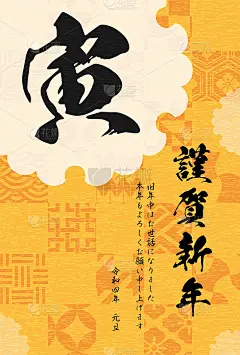 寅
謹賀新年
旧年中はお世話になりました
本年もよろしくお願い申し上げます
令和四年 元旦